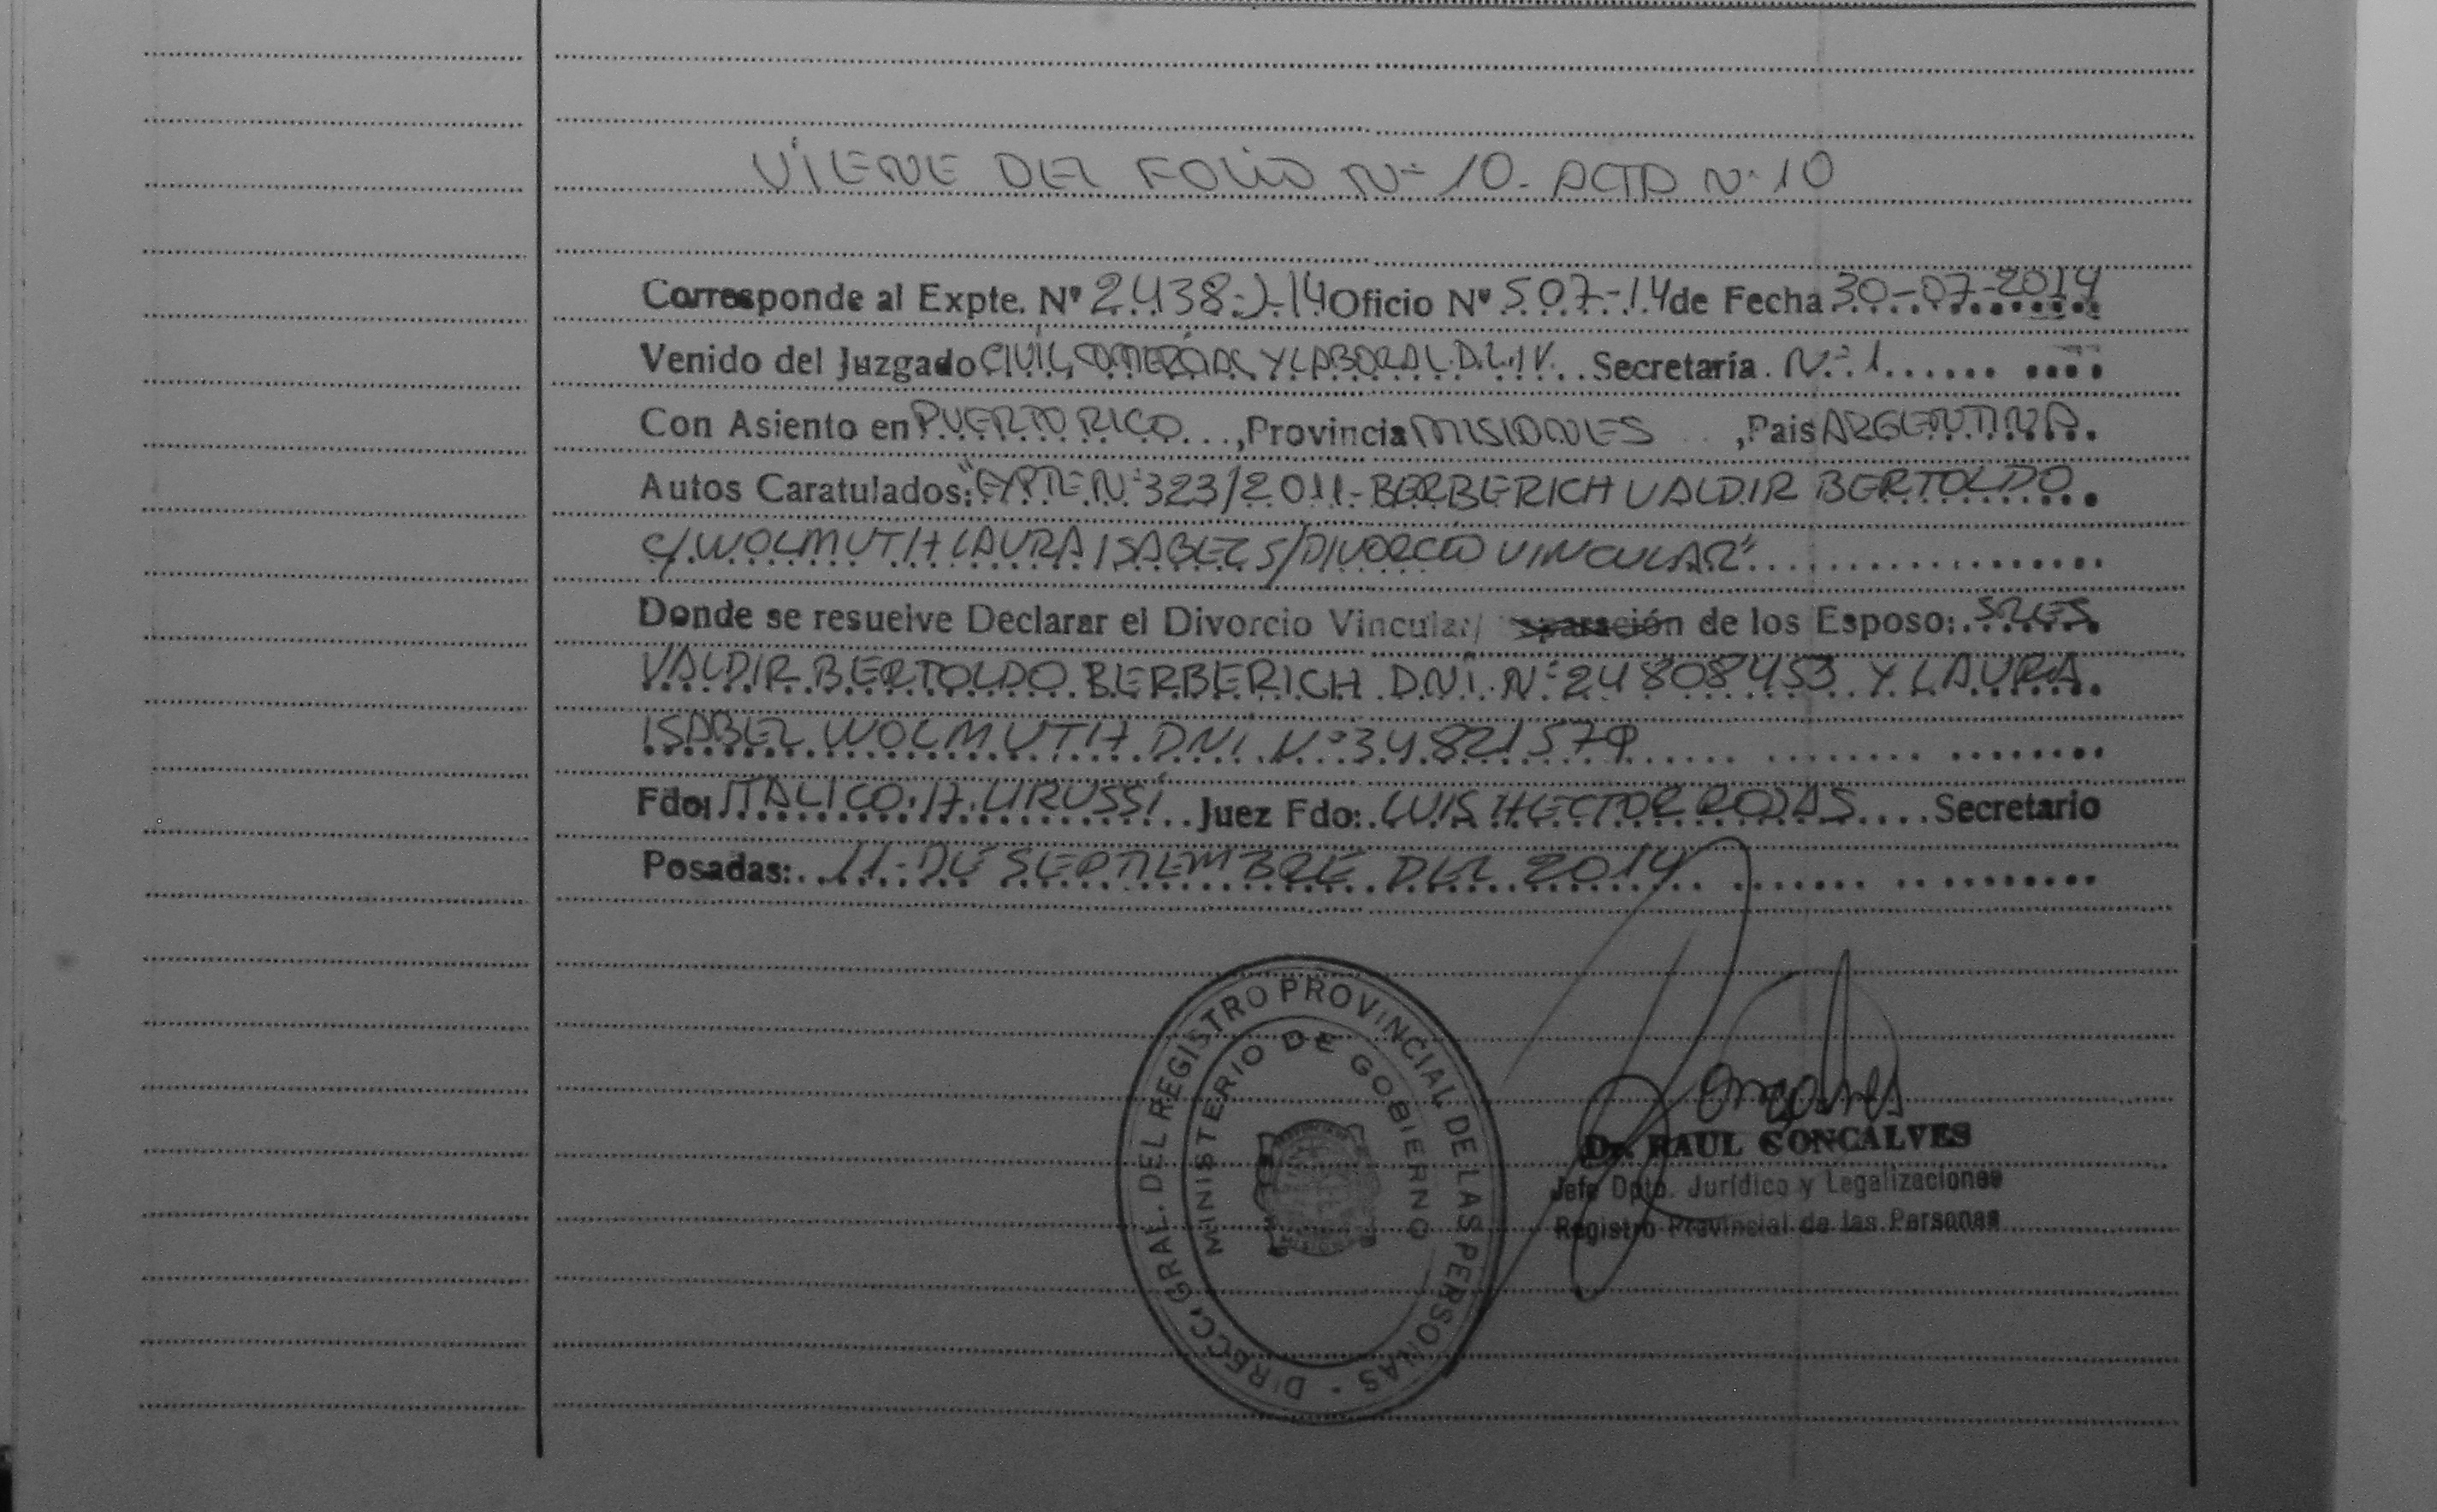 VIENE DEL FOLIO Nº 10 - ACTA Nº 10
Corresponde al Expte. Nº 2438-J-14 Oficio Nº 507-14 de Fecha 30-07-2014
Venido del Juzgado CIVIL, COMERCIAL Y LABORAL D.L.IV. Secretaría. Nº 1
Con Asiento en PUERTO RICO, Provincia MISIONES, Pais ARGENTINA.
Autos Caratulados: "EXPTE Nº 323/2011 - BERBERICH VALDIR BERTOLDO
C/ WOLMUTH LAURA ISABEL S/ DIVORCIO VINCULAR"
Donde se resuelve Declarar el Divorcio Vincular/ separación de los Esposo: SRES
VALDIR BERTOLDO BERBERICH D.N.I. Nº 24808453 Y LAURA
ISABEL WOLMUTH DNI Nº 34821579
Fdo: ITALICO. H. Juez Fdo: LUIS HECTOR ROJAS Secretario
Posadas: 11 DE SEPTIEMBRE DEL 2014
DIRECC. GRAL. DEL REGISTRO PROVINCIAL DE LAS PERSONAS
MINISTERIO DE GOBIERNO
Dr. RAUL GONCALVES
Jefe Dpto. Jurídico y Legalizaciones
Registro Provincial de las Personas